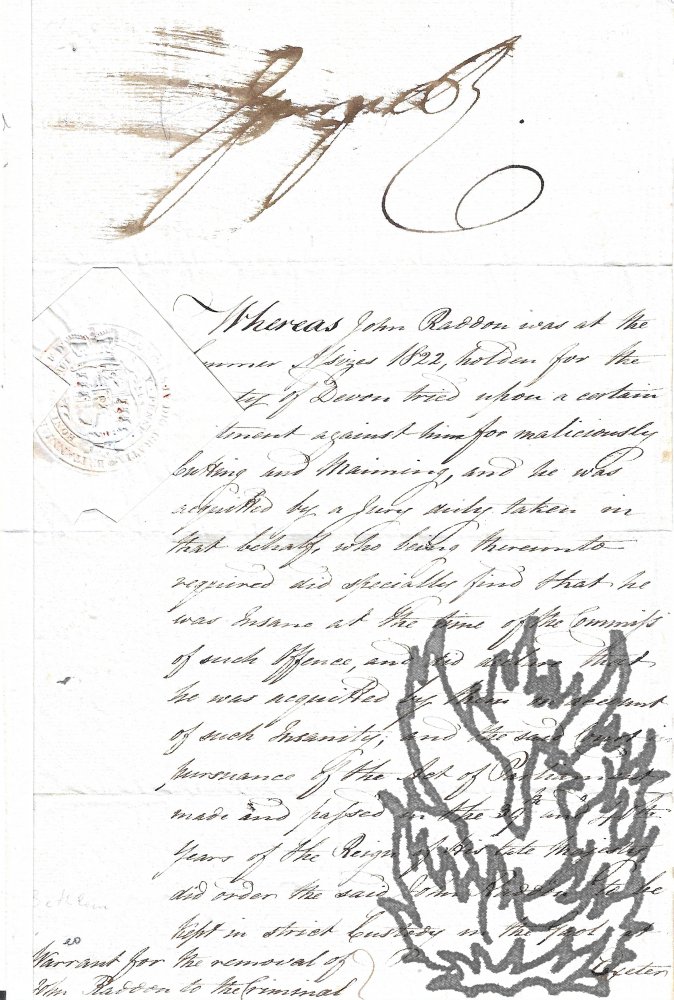 George R
Whereas John Raddon was at the
Summer Assizes 1822, holden for the
of Devon tried upon a certain
against him for maliciously
Cutting and Maiming, and he was
acquitted by a Jury duly taken in
that behalf, who being thereunto
required did specially find that he
was Insane at the time of the Commiss
of such Offence, and did declare that
he was acquitted by them on account
of such Insanity; and the said Court in
pursuance of the Act of Parliament
made and passed in the 39th and 40th
Years of the Reign of His late Majesty
did order the said John Raddon to be
kept in strict Custody in the Gaol at
Exeter
Bethlem
Warrant for the removal of
John Raddon to the Criminal